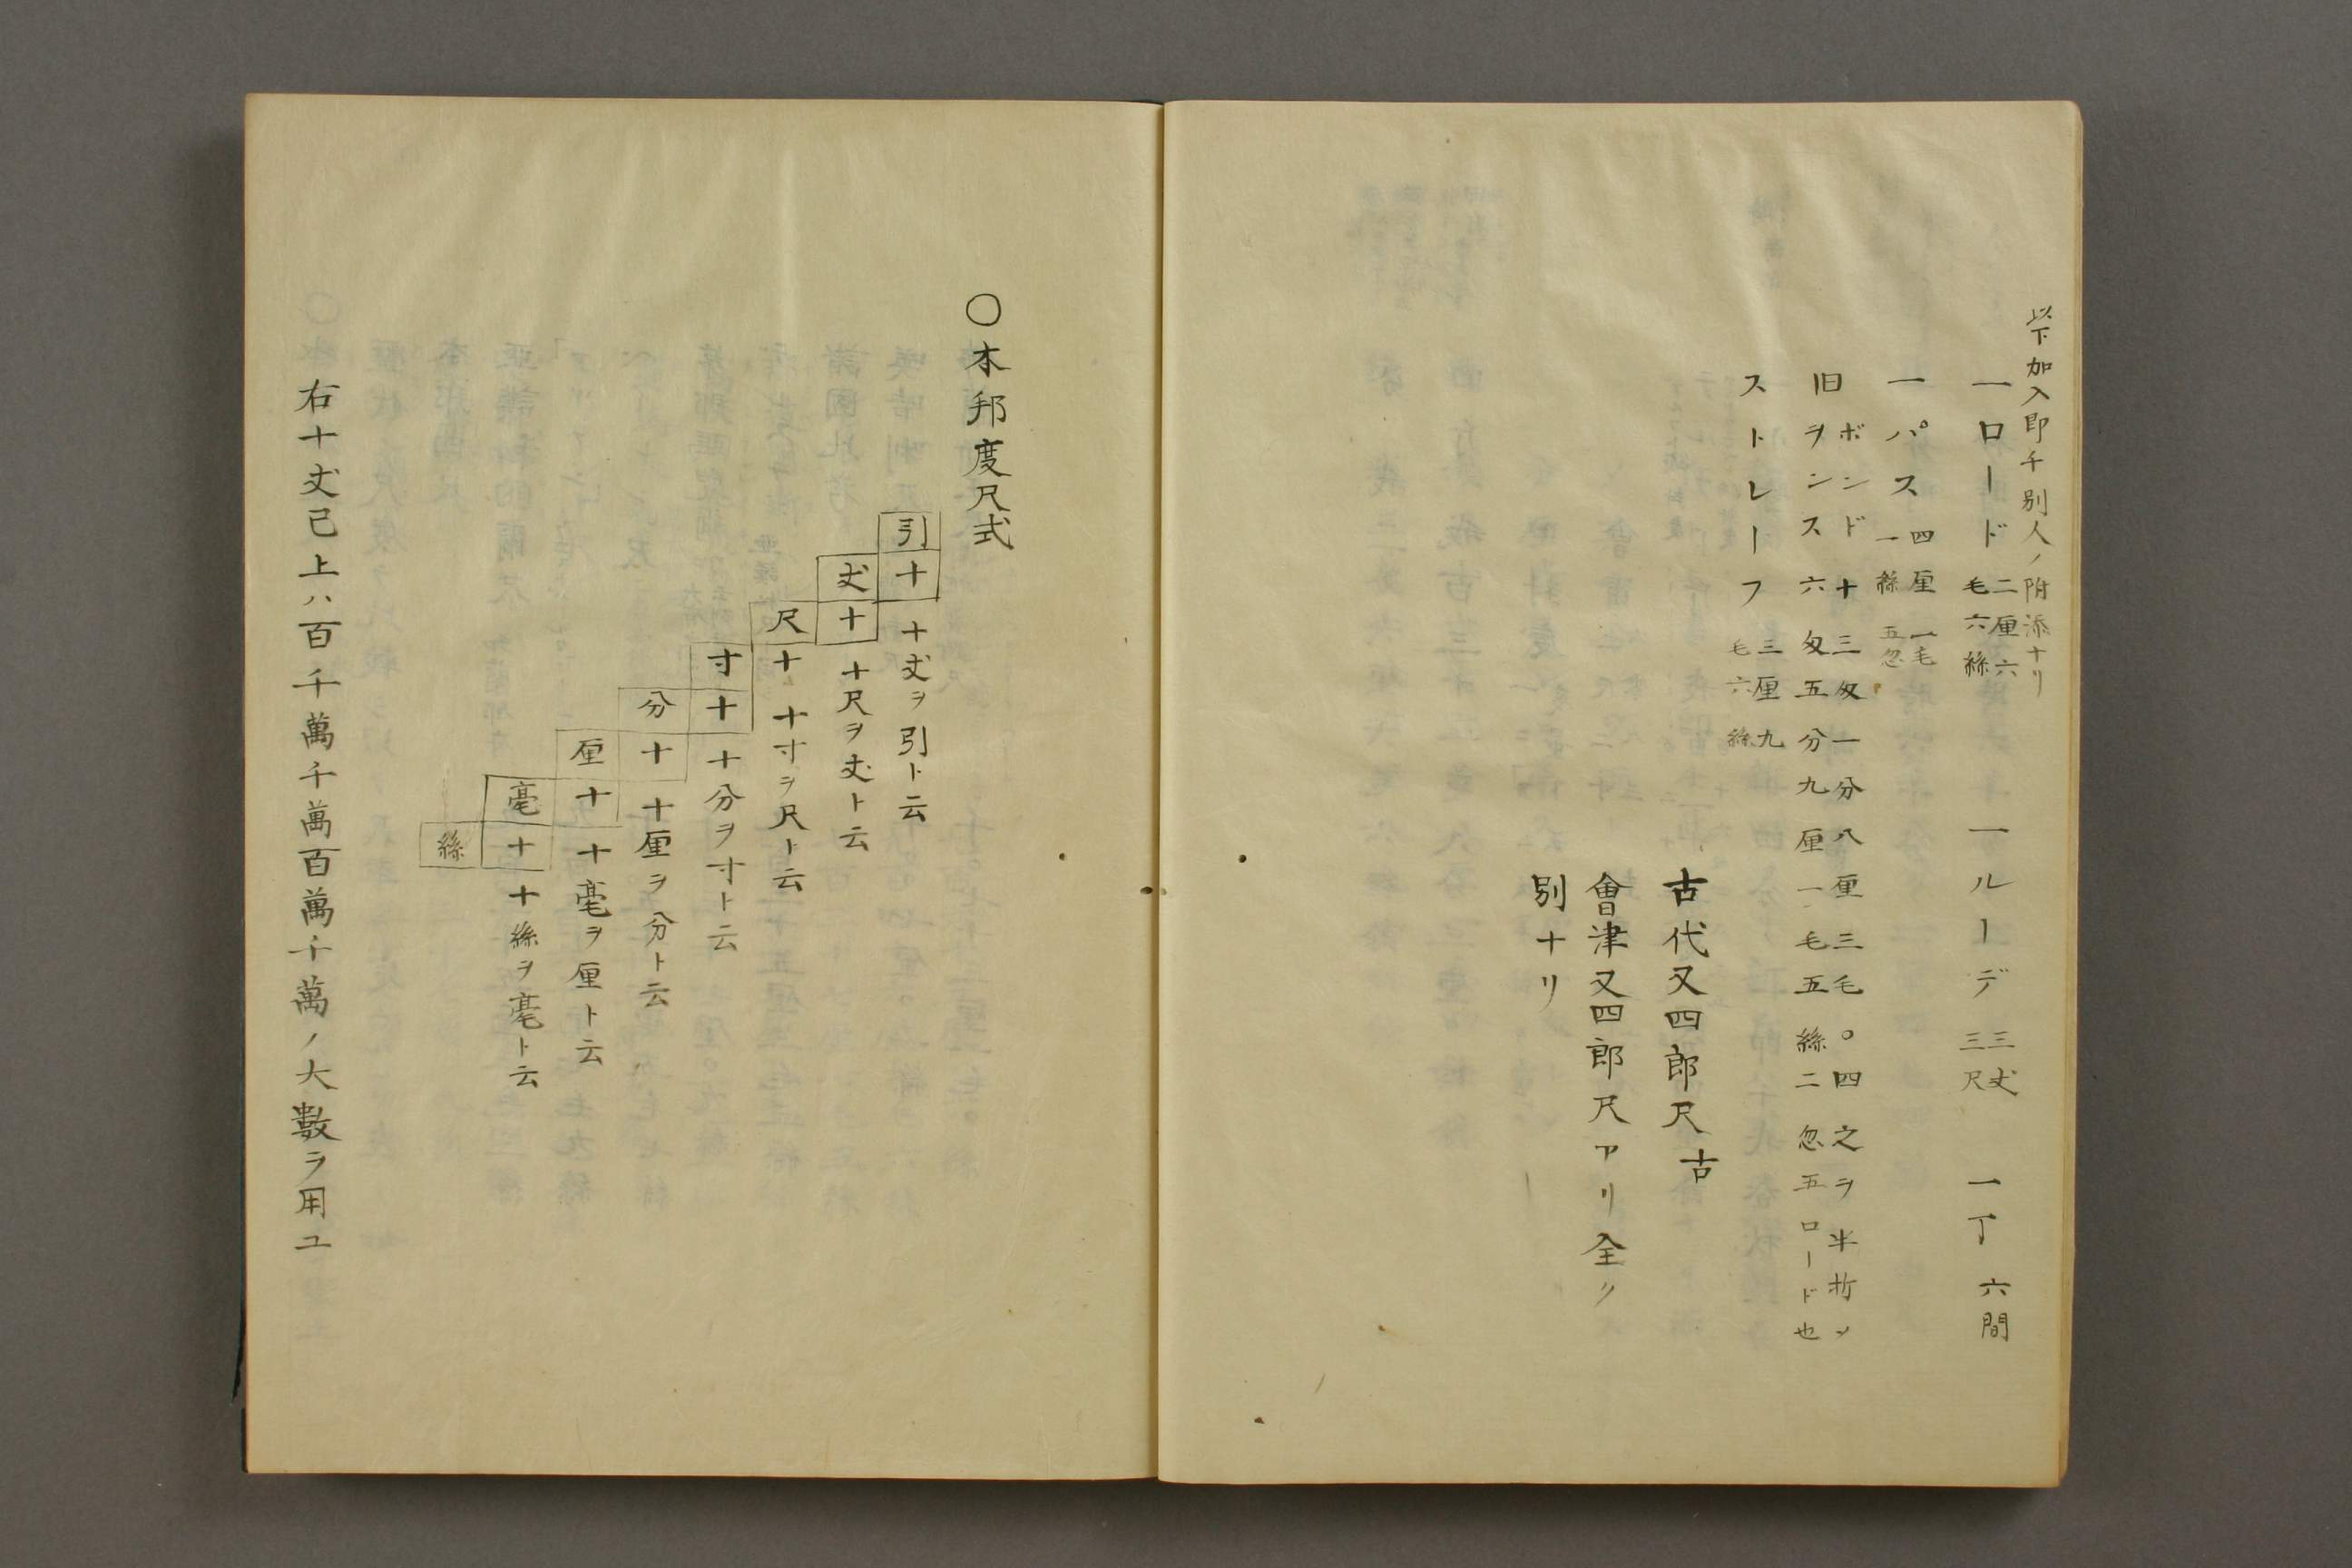 以下加入即チ別人ノ附添ナリ
一ロード 二厘六毛六絲 一ルーデ 三丈三尺 一丁 六間
一パス 四厘一毛一絲五忽
旧 ボンド 十三匁一分八厘三毛〇四之ヲ半折シ
ヲンス 六匁五分九厘一毛五絲二忽五ロード也
ストレーフ 三厘九毛六絲
古代又四郎尺 古
會津又四郎尺アリ全ク
別ナリ
〇本邦度尺式
引 十 十丈ヲ引ト云
丈 十 十尺ヲ丈ト云
尺 十 十寸ヲ尺ト云
寸 十 十分ヲ寸ト云
分 十 十厘ヲ分ト云
厘 十 十毫ヲ厘ト云
毫 十 十絲ヲ毫ト云
絲
右十丈已上ハ百千萬千萬百萬千萬ノ大數ヲ用ユ